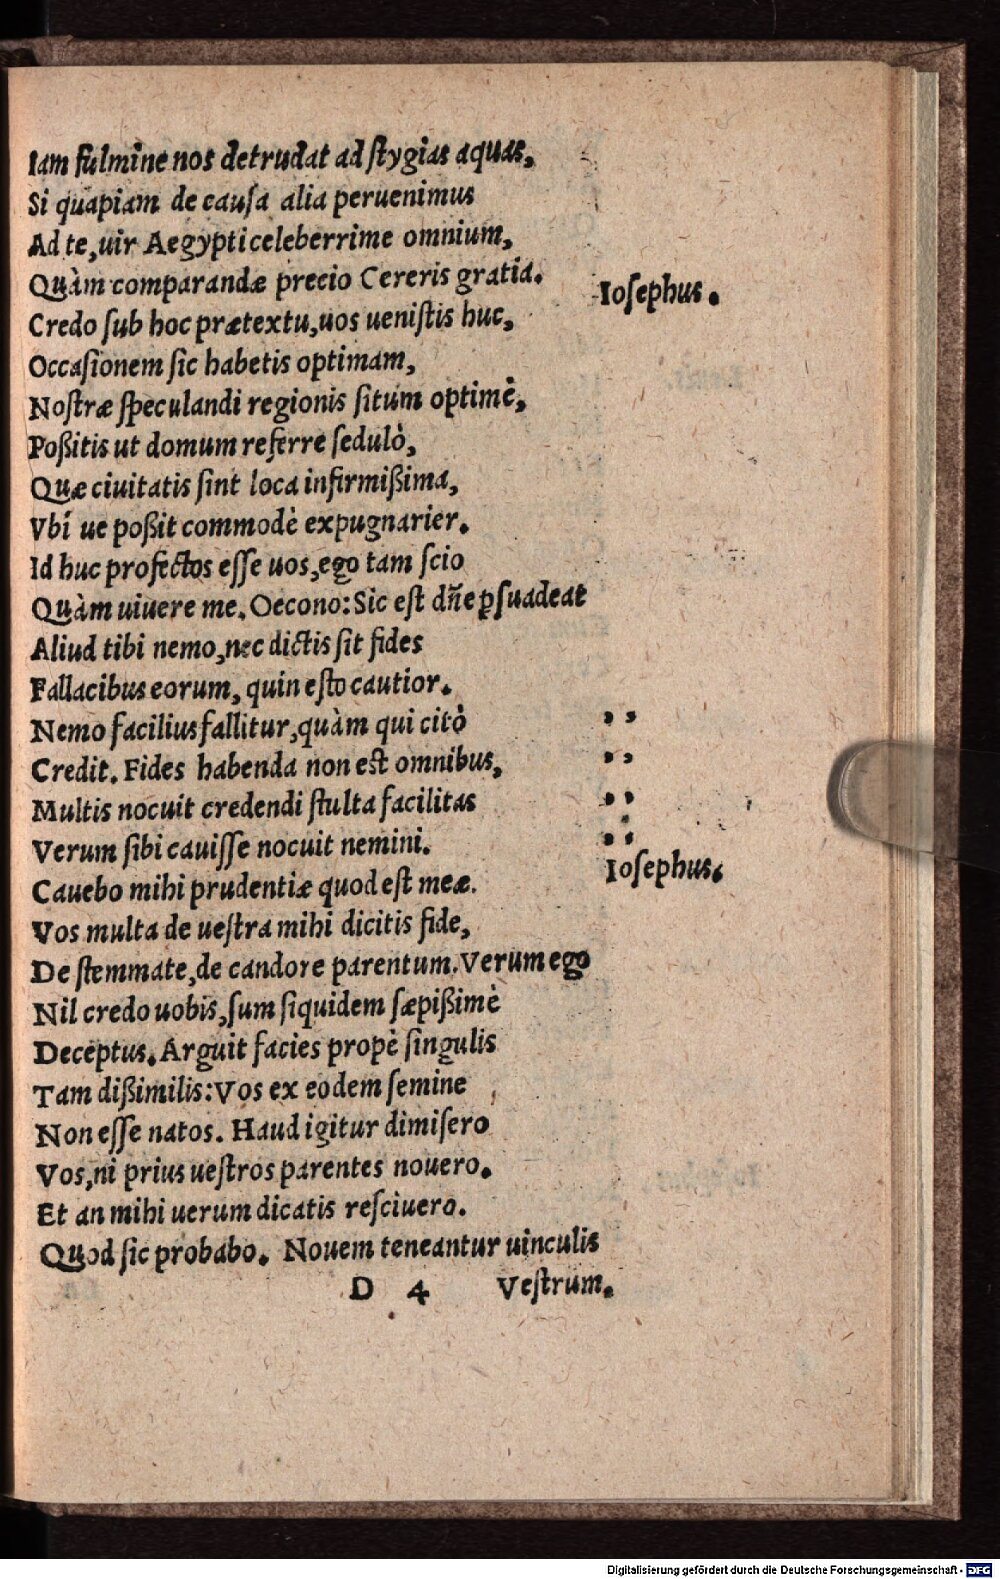 Iam fulmine nos detrudat ad ſtygias aquas,
Si quapiam de cauſa alia peruenimus
Ad te, uir Aegypti celeberrime omnium,
Quàm comparandæ precio Cereris gratia.
Ioſephus.
Credo ſub hoc prætextu, uos ueniſtis huc,
Occaſionem ſic habetis optimam,
Noſtræ ſpeculandi regionis ſitum optimè,
Poßitis ut domum referre ſedulò,
Quæ ciuitatis ſint loca infirmißima,
Vbi ue poßit commodè expugnarier.
Id huc profectos eſſe uos, ego tam ſcio
Quàm uiuere me. Oecono: Sic eſt dñe ꝑſuadeat
Aliud tibi nemo, nec dictis ſit fides
Fallacibus eorum, quin eſto cautior.
Nemo facilius fallitur, quàm qui citò ,,
Credit. Fides habenda non eſt omnibus, ,,
Multis nocuit credendi ſtulta facilitas ,,
Verum ſibi cauiſſe nocuit nemini. ,,
Ioſephus.
Cauebo mihi prudentiæ quod eſt meæ.
Vos multa de ueſtra mihi dicitis fide,
De ſtemmate, de candore parentum. Verum ego
Nil credo uobis, ſum ſiquidem ſæpißimè
Deceptus. Arguit facies propè ſingulis
Tam dißimilis: Vos ex eodem ſemine
Non eſſe natos. Haud igitur dimiſero
Vos, ni prius ueſtros parentes nouero.
Et an mihi uerum dicatis reſciuero.
Quod ſic probabo. Nouem teneantur uinculis
D 4 Veſtrum.
Digitalisierung gefördert durch die Deutsche Forschungsgemeinschaft - DFG